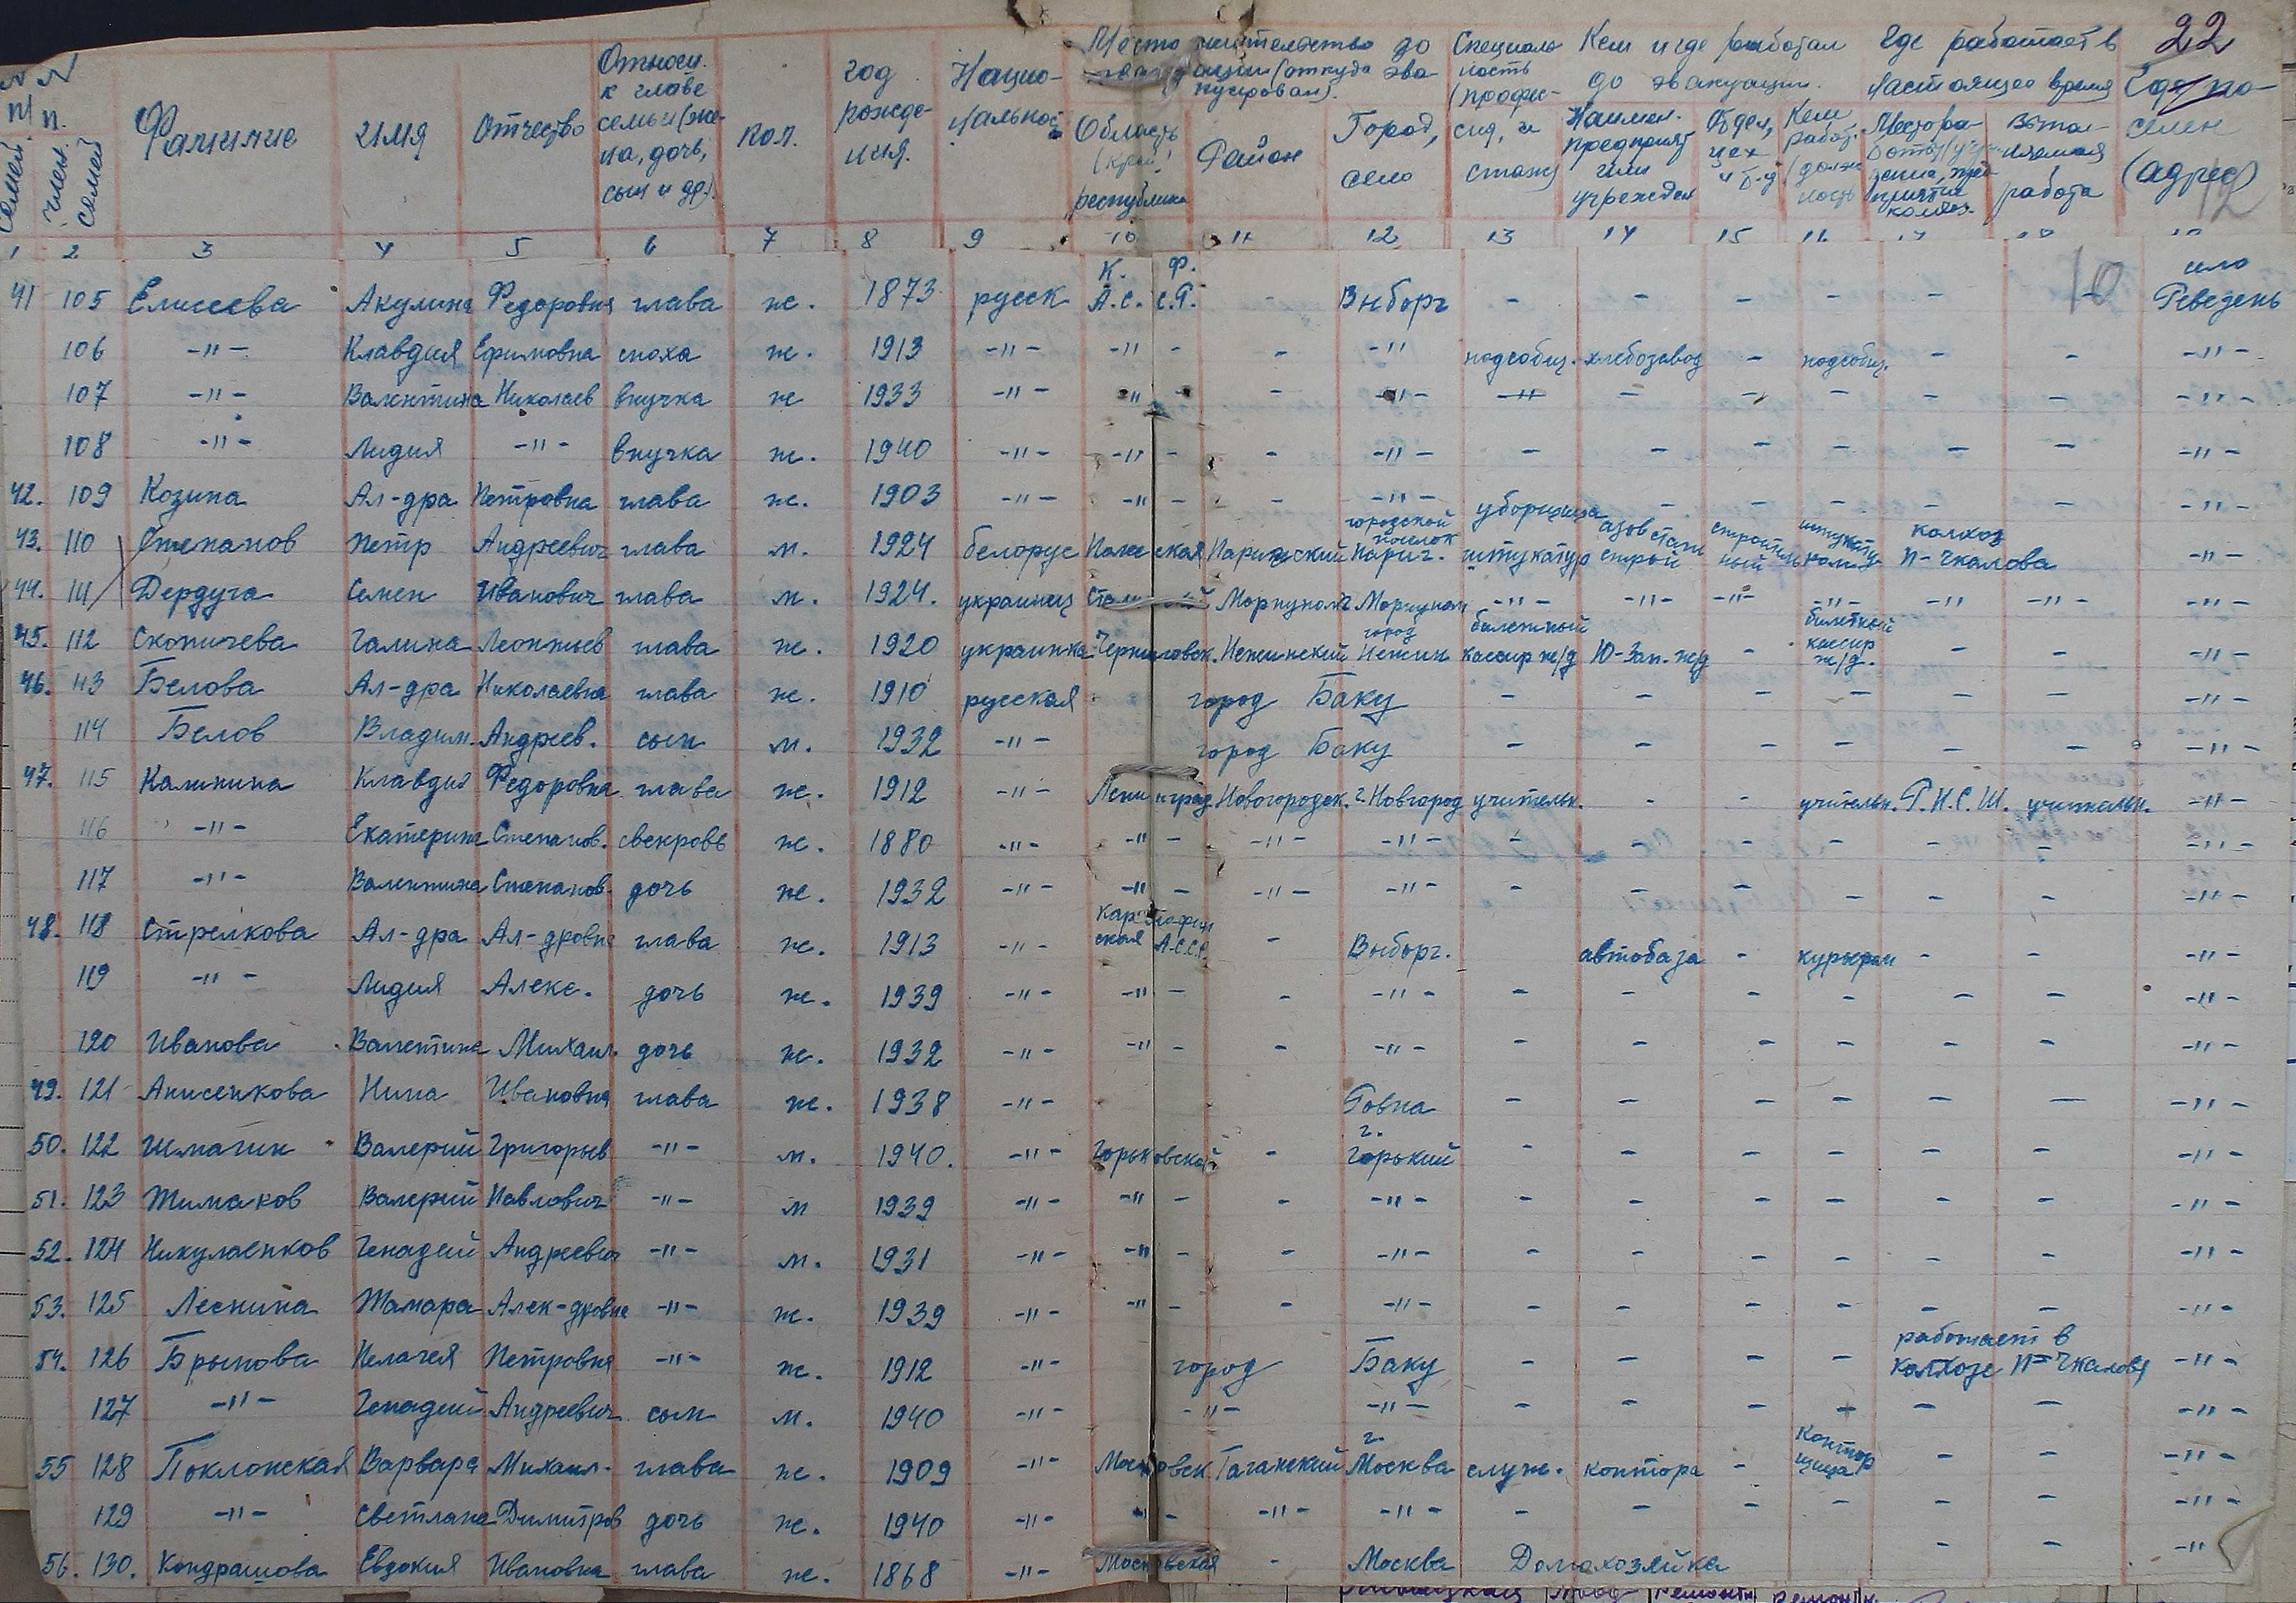 22
№ № п/п.
семей
член. семей
Фамилие
Имя
Отчество
Относ. к главе семьи (жена, дочь, сын и др.)
пол.
год рождения.
Национальность
Место жительство до эвакуации (откуда эвакуирован).
Область (край) республика
Район
Город, село
Специальность (профессия, и стаж)
Кем и где работал до эвакуации.
Наимен. предприят или учрежден
Отдел, цех и т.д
Кем работ. (должность
Где работает в настоящее время
Выполняемая работа
Где поселен (адрес)
12
1 2 3 4 5 6 7 8 9 10 11 12 13 14 15 16 17 18 19
10
41 105 Елисеева Акулина Федоровна глава ж. 1873 русск К. Ф. А.С. С.Р. - Выборг - - - - - село Реведень
106 -"- Клавдия Ефимовна сноха ж. 1913 -"- -"- - -"- подсобн. хлебозавод - подсобн. - - -"-
107 -"- Валентина Николаев внучка ж 1933 -"- -"- - -"- -"- - - - - - -"-
108 -"- Лидия -"- внучка ж. 1940 -"- -"- - -"- - - - - - - -"-
42. 109 Козина Ал-дра Петровна глава ж. 1903 -"- -"- - -"- уборщица - - - - - -"-
43. 110 Степанов Петр Андреевич глава м. 1924 белорус Полесская Паричский городской поселок Парич. штукатур азовстальстрой строительный колхоз п-Чкалова -"-
44. 111 Дердуга Семен Иванович глава м. 1924. украинец Мариуполь Мариупол -"- -"- -"- -"- -"- -"- -"-
45. 112 Скопичева Галина Леонтьев глава ж. 1920 украинка Черниговск. Нежинский город Нежин билетный кассир ж/д Ю-Зап. ж/д - билетный кассир ж/д. - - -"-
46. 113 Белова Ал-дра Николаевна глава ж. 1910 русская город Баку - - - - - - -"-
114 Белов Владим. Андреев. сын м. 1932 -"- город Баку - - - - - - -"-
47. 115 Калинина Клавдия Федоровна глава ж. 1912 -"- Ленинград. Новогородск. г. Новгород учительн. - - учительн. Р.Н.С.Ш. учительн. -"-
116 -"- Екатерина Степанов. свекровь ж. 1880 -"- -"- -"- -"- - - - - - - -"-
117 -"- Валентина Степанов. дочь ж. 1932 -"- -"- -"- -"- - - - - - - -"-
48. 118 Стрелкова Ал-дра Ал-дровна глава ж. 1913 -"- А.С.С.Р. - Выборг. автобаза - курьером - - -"-
119 -"- Лидия Алекс. дочь ж. 1939 -"- -"- - -"- - - - - - - -"-
120 Иванова Валентина Михаил. дочь ж. 1932 -"- -"- - -"- - - - - - - -"-
49. 121 Анисенкова Нина Ивановна глава ж. 1938 -"- Ровна - - - - - - -"-
50. 122 Шмагин Валерий Григорьев -"- м. 1940. -"- Горьковской - г. Горький - - - - - - -"-
51. 123 Жимаков Валерий Павлович -"- м 1939 -"- -"- - -"- - - - - - - -"-
52. 124 Никуленков Генадий Андреевич -"- м. 1931 -"- -"- - -"- - - - - - - -"-
53. 125 Леснина Тамара Алек-дровна -"- ж. 1939 -"- -"- - -"- - - - - - - -"-
54. 126 Брынова Пелагея Петровна -"- ж. 1912 -"- город Баку - - - - работает в колхозе п-Чкалова -"-
127 -"- Генадий Андреевич сын м. 1940 -"- -"- -"- - - - - - - -"-
55 128 Поклонская Варвара Михаил. глава ж. 1909 -"- Московск Таганский г. Москва служ. контора - конторщица - - -"-
129 -"- Светлана Димитров дочь ж. 1940 -"- -"- -"- -"- - - - - - - -"-
56. 130. Кондрашова Евдокия Ивановна глава ж. 1868 -"- Московская - Москва Домохозяйка - - -"